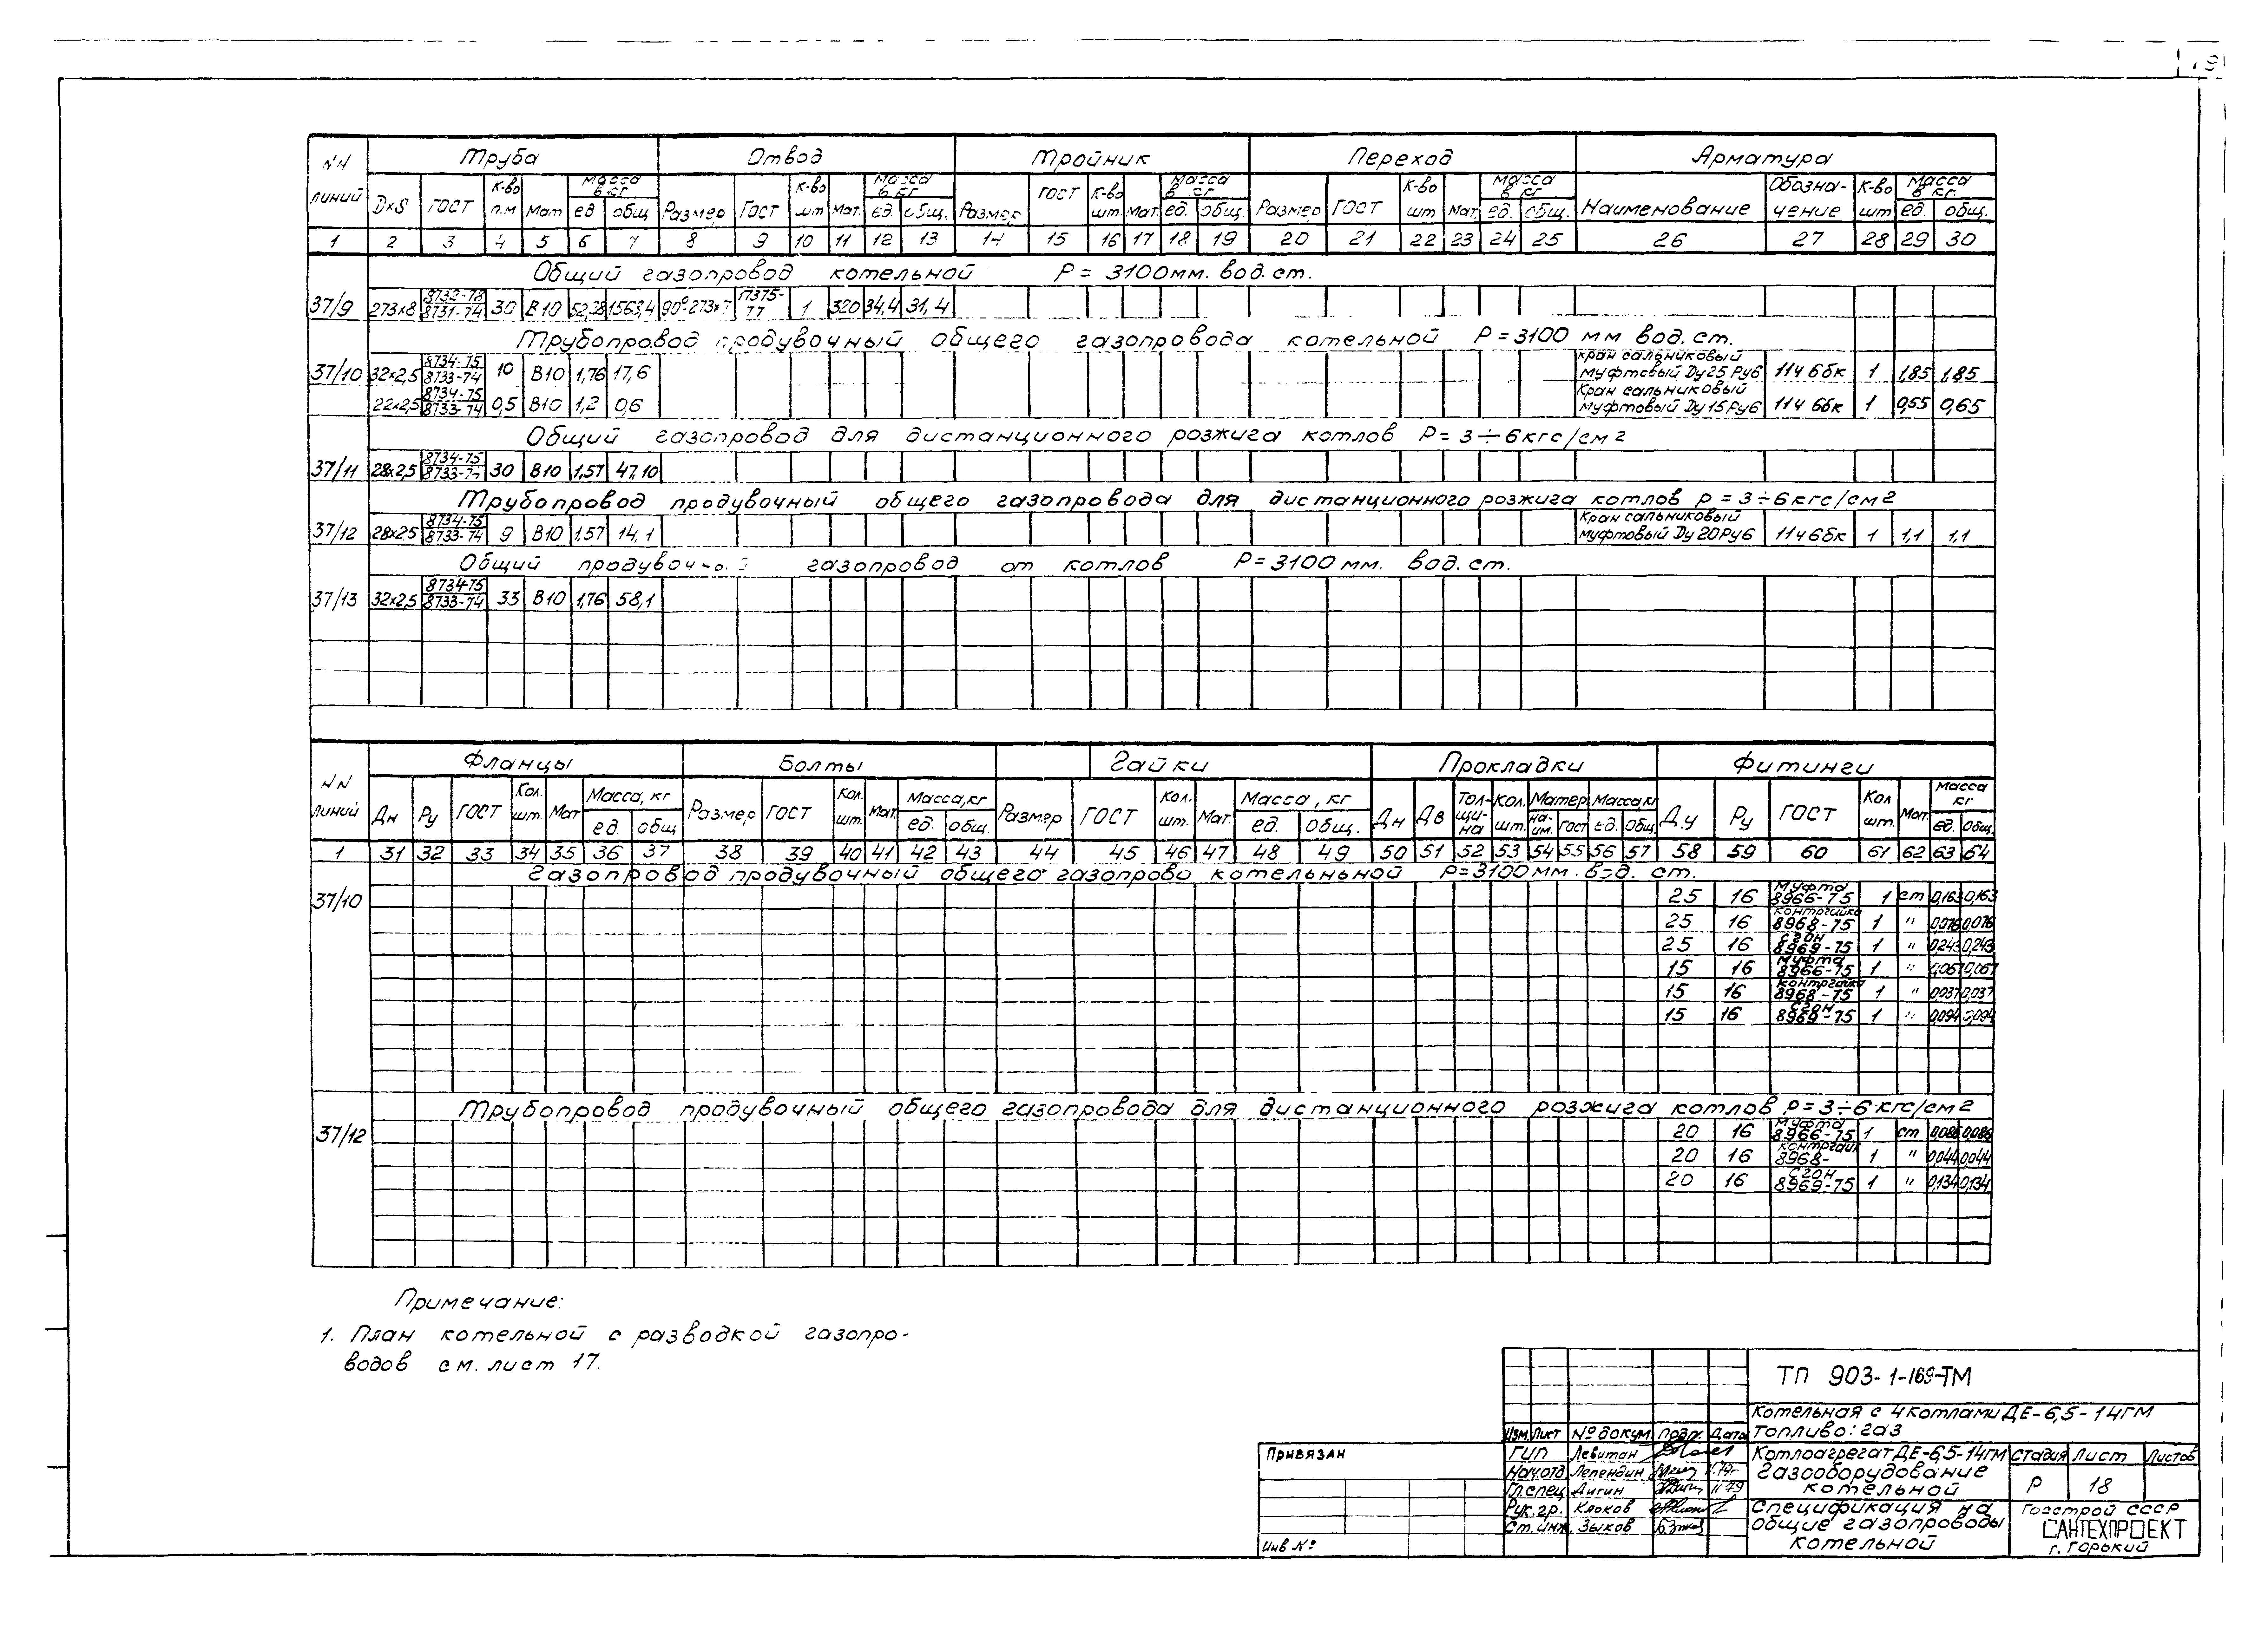 19
NN линий | Труба | Отвод | Тройник | Переход | Арматура
DxS | ГОСТ | К-во п.м | Мат | Масса в кг ед | общ | Размер | ГОСТ | К-во шт | Мат. | Масса в кг ед. | общ. | Размер | ГОСТ | К-во шт | Мат. | Масса в кг ед. | общ. | Размер | ГОСТ | К-во шт | Мат. | Масса в кг ед. | общ. | Наименование | Обозна-чение | К-во шт | Масса в кг. ед. | общ.
1 2 3 4 5 6 7 8 9 10 11 12 13 14 15 16 17 18 19 20 21 22 23 24 25 26 27 28 29 30
Общий газопровод котельной P = 3100мм. вод. ст.
37/9 273x8 8732-78 8731-74 30 В10 52,38 1563,4 90°-273x7 17375-77 1 320 34,4 31,4
Трубопровод продувочный общего газопровода котельной P = 3100 мм вод. ст.
37/10 32x2,5 8734-75 8733-74 10 В10 1,76 17,6 Кран сальниковый муфтовый Ду25 Ру6 11ч 6бк 1 1,85 1,85
22x2,5 8734-75 8733-74 0,5 В10 1,2 0,6 Кран сальниковый муфтовый Ду15 Ру6 11ч 6бк 1 0,55 0,65
Общий газопровод для дистанционного розжига котлов P = 3÷6кгс/см2
37/11 28x2,5 8734-75 8733-74 30 В10 1,57 47,10
Трубопровод продувочный общего газопровода для дистанционного розжига котлов P = 3÷6кгс/см2
37/12 28x2,5 8734-75 8733-74 9 В10 1,57 14,1 Кран сальниковый муфтовый Ду 20Ру6 11ч6бк 1 1,1 1,1
Общий газопровод от котлов P = 3100 мм. вод. ст.
37/13 32x2,5 8734-75 8733-74 33 В10 1,76 58,1
NN линий | Фланцы | Болты | Гайки | Прокладки | Фитинги
Дн | Ру | ГОСТ | Кол. шт. | Мат | Масса, кг ед. | общ | Размер | ГОСТ | Кол. шт. | Мат. | Масса, кг ед. | общ. | Размер | ГОСТ | Кол. шт. | Мат. | Масса, кг ед. | Общ. | Дн | Дв | Тол-щи-на | Кол. шт. | Матер. на-им. | ГОСТ | Масса, кг Ед. | Общ. | Д.у | Ру | ГОСТ | Кол шт. | Мат. | Масса кг ед. | Общ.
1 31 32 33 34 35 36 37 38 39 40 41 42 43 44 45 46 47 48 49 50 51 52 53 54 55 56 57 58 59 60 61 62 63 64
Газопровод продувочный общего газопрово котельньной P=3100 мм. вод. ст.
37/10 25 16 Муфта 8966-75 1 ст 0,163 0,163
25 16 Контргайка 8968-75 1 " 0,076 0,076
25 16 Сгон 8969-75 1 " 0,243 0,243
15 16 Муфта 8966-75 1 " 0,067 0,067
15 16 Контргайка 8968-75 1 " 0,037 0,037
15 16 Сгон 8969-75 1 " 0,094 0,094
Трубопровод продувочный общего газопровода для дистанционного розжига котлов P = 3÷6 кгс/см2
37/12 20 16 Муфта 8966-75 1 ст 0,086 0,086
20 16 контргайк 8968- 1 " 0,044 0,044
20 16 Сгон 8969-75 1 " 0,134 0,134
Примечание:
1. План котельной с разводкой газопро-
водов см. лист 17.
ТП 903-1-169-ТМ
Котельная с 4 котлами ДЕ-6,5-14ГМ
Топливо: газ
Изм. Лист № докум. Подп. Дата
Привязан
Инв №
ГИП Левитан
Нач.отд Лепендин 11.79г
Гл.спец Дигин 11.79
Рук.гр. Клоков
Ст.инж. Зыков
Котлоагрегат ДЕ-6,5-14ГМ
Газооборудование
котельной
Стадия Лист Листов
Р 18
Спецификация на
общие газопроводы
котельной
Госстрой СССР
САНТЕХПРОЕКТ
г. Горький